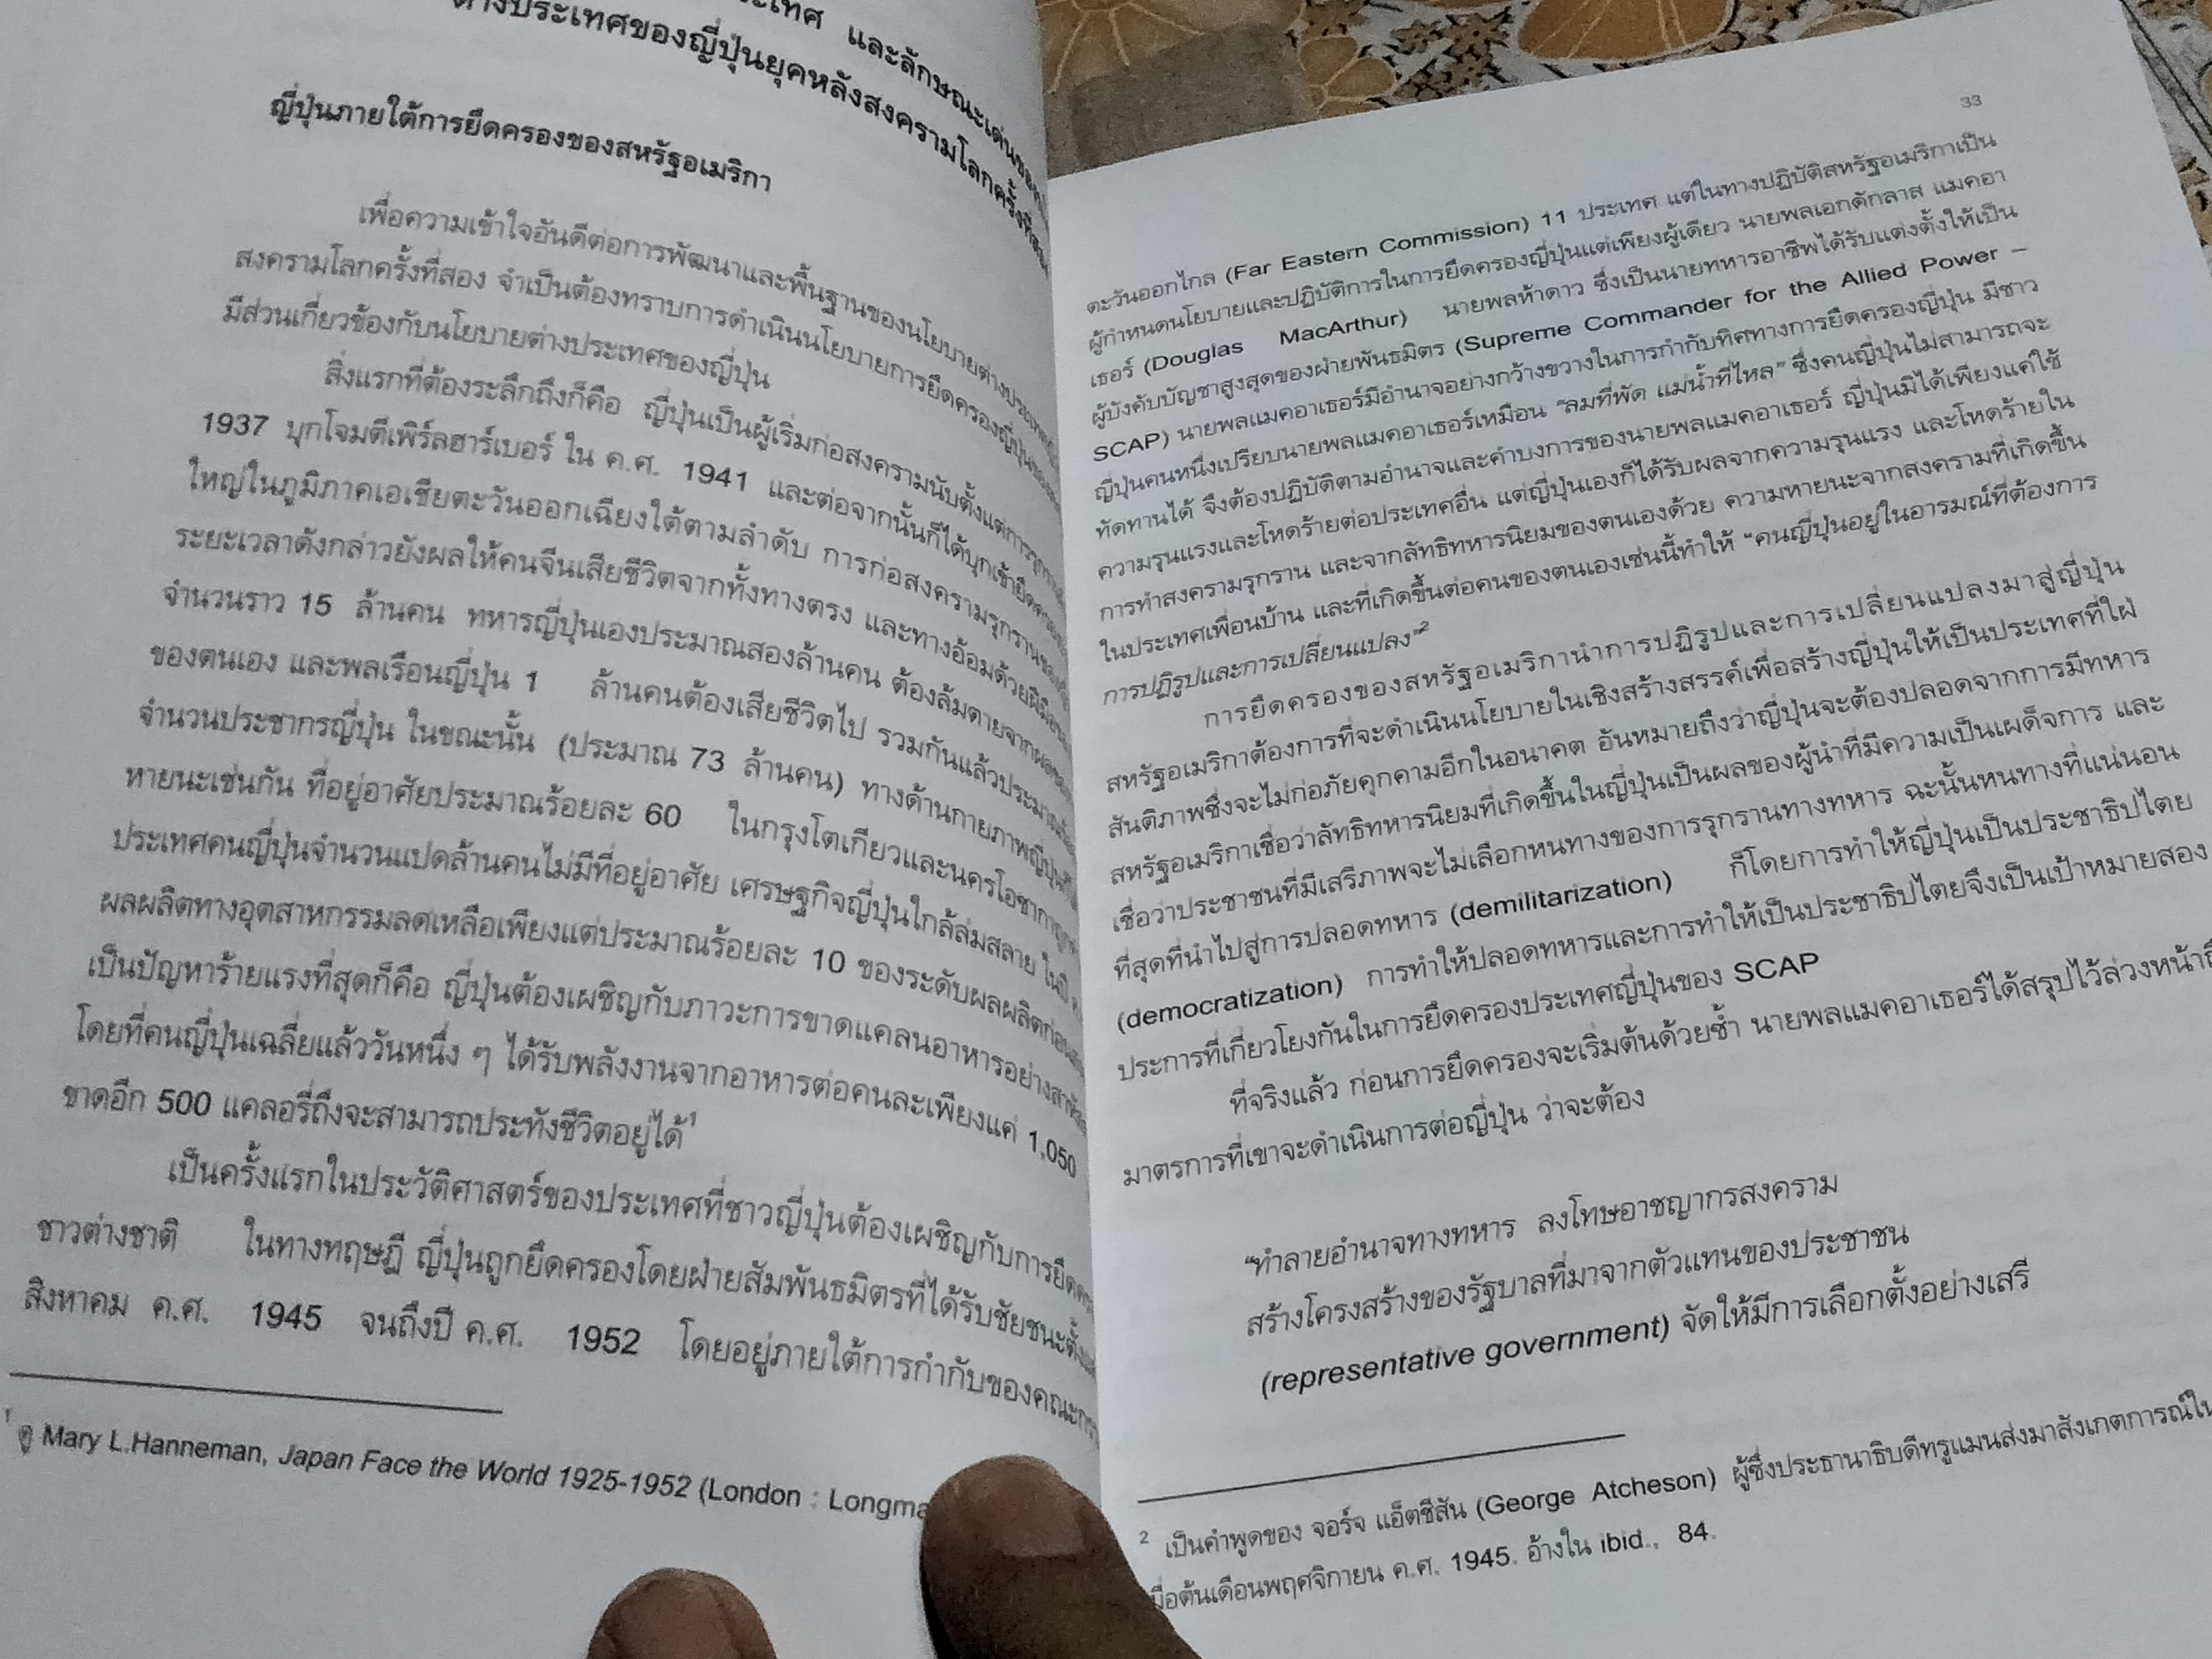 และลักษณะเด่นของ
ต่างประเทศของญี่ปุ่นยุคหลังสงครามโลกครั้งที่สอง
ญี่ปุ่นภายใต้การยึดครองของสหรัฐอเมริกา
เพื่อความเข้าใจอันดีต่อการพัฒนาและพื้นฐานของนโยบายต่างประเทศ
สงครามโลกครั้งที่สอง จำเป็นต้องทราบการดำเนินนโยบายการยึดครองญี่ปุ่นของ
มีส่วนเกี่ยวข้องกับนโยบายต่างประเทศของญี่ปุ่น
สิ่งแรกที่ต้องระลึกถึงก็คือ ญี่ปุ่นเป็นผู้เริ่มก่อสงครามนับตั้งแต่การรุกราน
1937 บุกโจมตีเพิร์ลฮาร์เบอร์ ใน ค.ศ. 1941 และต่อจากนั้นก็ได้บุกเข้ายึดครอง
ใหญ่ในภูมิภาคเอเชียตะวันออกเฉียงใต้ตามลำดับ การก่อสงครามรุกรานของญี่ปุ่น
ระยะเวลาดังกล่าวยังผลให้คนจีนเสียชีวิตจากทั้งทางตรง และทางอ้อมด้วยฝีมือ
จำนวนราว 15 ล้านคน ทหารญี่ปุ่นเองประมาณสองล้านคน ต้องล้มตายจากผล
ของตนเอง และพลเรือนญี่ปุ่น 1 ล้านคนต้องเสียชีวิตไป รวมกันแล้วประมาณ
จำนวนประชากรญี่ปุ่น ในขณะนั้น (ประมาณ 73 ล้านคน) ทางด้านกายภาพญี่ปุ่นก็
หายนะเช่นกัน ที่อยู่อาศัยประมาณร้อยละ 60 ในกรุงโตเกียวและนครโอซากา
ประเทศคนญี่ปุ่นจำนวนแปดล้านคนไม่มีที่อยู่อาศัย เศรษฐกิจญี่ปุ่นใกล้ล่มสลาย ในปี
ผลผลิตทางอุตสาหกรรมลดเหลือเพียงแต่ประมาณร้อยละ 10 ของระดับผลผลิตก่อน
เป็นปัญหาร้ายแรงที่สุดก็คือ ญี่ปุ่นต้องเผชิญกับภาวะการขาดแคลนอาหารอย่างสาหัส
โดยที่คนญี่ปุ่นเฉลี่ยแล้ววันหนึ่ง ๆ ได้รับพลังงานจากอาหารต่อคนละเพียงแค่ 1,050
ขาดอีก 500 แคลอรี่ถึงจะสามารถประทังชีวิตอยู่ได้1
เป็นครั้งแรกในประวัติศาสตร์ของประเทศที่ชาวญี่ปุ่นต้องเผชิญกับการยึดครอง
ชาวต่างชาติ ในทางทฤษฎี ญี่ปุ่นถูกยึดครองโดยฝ่ายสัมพันธมิตรที่ได้รับชัยชนะตั้งแต่
สิงหาคม ค.ศ. 1945 จนถึงปี ค.ศ. 1952 โดยอยู่ภายใต้การกำกับของคณะกรร
1 ดู Mary L.Hanneman, Japan Face the World 1925-1952 (London : Longma
33
ตะวันออกไกล (Far Eastern Commission) 11 ประเทศ แต่ในทางปฏิบัติสหรัฐอเมริกาเป็น
ผู้กำหนดนโยบายและปฏิบัติการในการยึดครองญี่ปุ่นแต่เพียงผู้เดียว นายพลเอกดักลาส แมคอา
เธอร์ (Douglas MacArthur) นายพลห้าดาว ซึ่งเป็นนายทหารอาชีพได้รับแต่งตั้งให้เป็น
ผู้บังคับบัญชาสูงสุดของฝ่ายพันธมิตร (Supreme Commander for the Allied Power –
SCAP) นายพลแมคอาเธอร์มีอำนาจอย่างกว้างขวางในการกำกับทิศทางการยึดครองญี่ปุ่น มีชาว
ญี่ปุ่นคนหนึ่งเปรียบนายพลแมคอาเธอร์เหมือน “ลมที่พัด แม่น้ำที่ไหล” ซึ่งคนญี่ปุ่นไม่สามารถจะ
ทัดทานได้ จึงต้องปฏิบัติตามอำนาจและคำบงการของนายพลแมคอาเธอร์ ญี่ปุ่นมิได้เพียงแค่ใช้
ความรุนแรงและโหดร้ายต่อประเทศอื่น แต่ญี่ปุ่นเองก็ได้รับผลจากความรุนแรง และโหดร้ายใน
การทำสงครามรุกราน และจากลัทธิทหารนิยมของตนเองด้วย ความหายนะจากสงครามที่เกิดขึ้น
ในประเทศเพื่อนบ้าน และที่เกิดขึ้นต่อคนของตนเองเช่นนี้ทำให้ “คนญี่ปุ่นอยู่ในอารมณ์ที่ต้องการ
การปฏิรูปและการเปลี่ยนแปลง”2
การยึดครองของสหรัฐอเมริกานำการปฏิรูปและการเปลี่ยนแปลงมาสู่ญี่ปุ่น
สหรัฐอเมริกาต้องการที่จะดำเนินนโยบายในเชิงสร้างสรรค์เพื่อสร้างญี่ปุ่นให้เป็นประเทศที่ใฝ่
สันติภาพซึ่งจะไม่ก่อภัยคุกคามอีกในอนาคต อันหมายถึงว่าญี่ปุ่นจะต้องปลอดจากการมีทหาร
สหรัฐอเมริกาเชื่อว่าลัทธิทหารนิยมที่เกิดขึ้นในญี่ปุ่นเป็นผลของผู้นำที่มีความเป็นเผด็จการ และ
เชื่อว่าประชาชนที่มีเสรีภาพจะไม่เลือกหนทางของการรุกรานทางทหาร ฉะนั้นหนทางที่แน่นอน
ที่สุดที่นำไปสู่การปลอดทหาร (demilitarization) ก็โดยการทำให้ญี่ปุ่นเป็นประชาธิปไตย
(democratization) การทำให้ปลอดทหารและการทำให้เป็นประชาธิปไตยจึงเป็นเป้าหมายสอง
ประการที่เกี่ยวโยงกันในการยึดครองประเทศญี่ปุ่นของ SCAP
ที่จริงแล้ว ก่อนการยึดครองจะเริ่มต้นด้วยซ้ำ นายพลแมคอาเธอร์ได้สรุปไว้ล่วงหน้าถึ
มาตรการที่เขาจะดำเนินการต่อญี่ปุ่น ว่าจะต้อง
“ทำลายอำนาจทางทหาร ลงโทษอาชญากรสงคราม
สร้างโครงสร้างของรัฐบาลที่มาจากตัวแทนของประชาชน
(representative government) จัดให้มีการเลือกตั้งอย่างเสรี
2 เป็นคำพูดของ จอร์จ แอ็ตชีสัน (George Atcheson) ผู้ซึ่งประธานาธิบดีทรูแมนส่งมาสังเกตการณ์ใน
มื่อต้นเดือนพฤศจิกายน ค.ศ. 1945. อ้างใน ibid., 84.